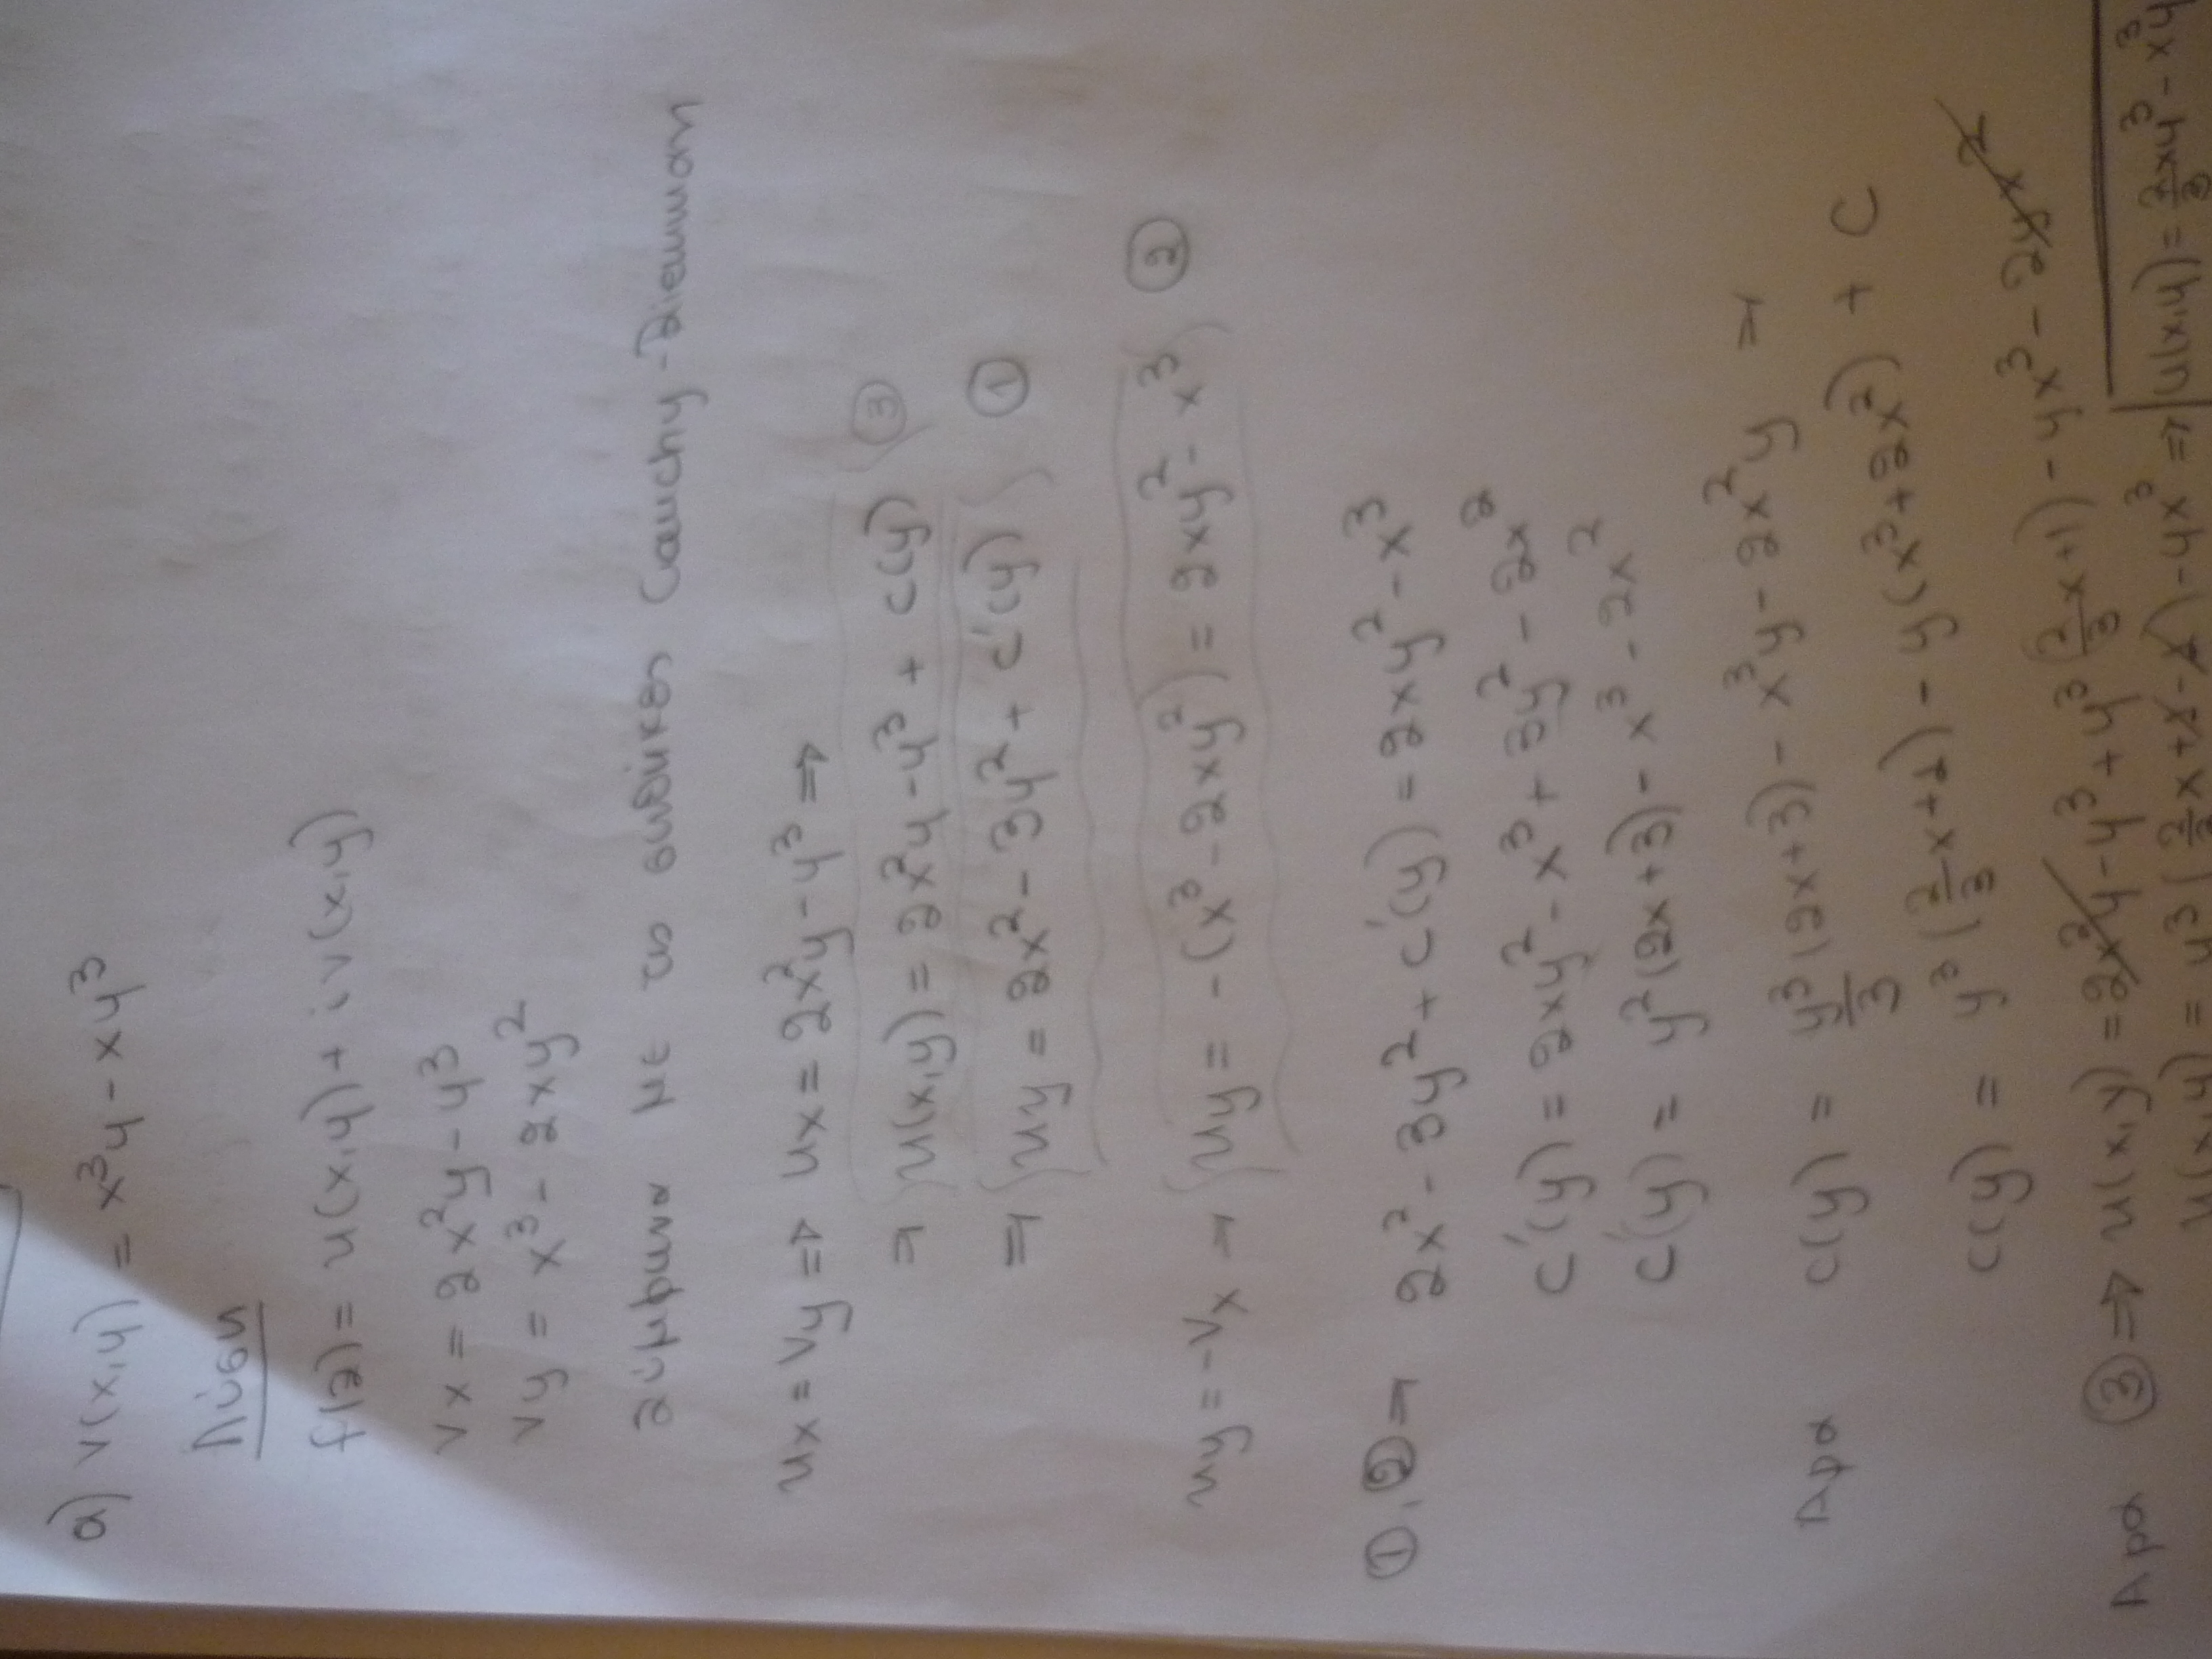 α) v(x,y) = x³y - xy³
Λύση
f(z) = u(x,y) + iv(x,y)
vx = 2x²y - y³
vy = x³ - 2xy²
Σύμφωνα με τις συνθήκες Cauchy-Riemman
ux = vy ⇒ ux = 2x²y - y³ ⇒
⇒ u(x,y) = 2x²y - y³ + c(y) ③
⇒ uy = 2x² - 3y² + c'(y) ①
uy = -vx ⇒ uy = -(x³ - 2xy²) = 2xy² - x³ ②
①,② ⇒ 2x² - 3y² + c'(y) = 2xy² - x³
c'(y) = 2xy² - x³ + 3y² - 2x²
c'(y) = y²(2x+3) - x³ - 2x²
Άρα c(y) = y³/3 (2x+3) - x³y - 2x²y ⇒
c(y) = y³(2/3 x+1) - y(x³+2x²) + c
Άρα ③ ⇒ u(x,y) = 2x²y - y³ + y³(2/3 x+1) - yx³ - 2yx²
u(x,y) = y³(2/3 x+1-1) - yx³ ⇒ u(x,y) = 2/3 xy³ - x³y